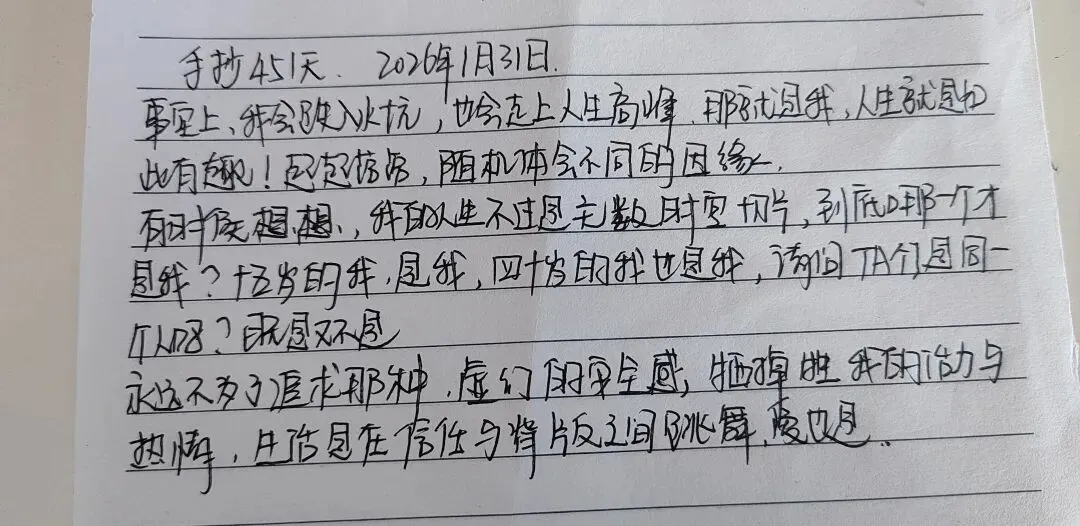 手抄451天. 2026年1月31日.
事实上、我会跌入火坑，也会走上人生高峰. 那就是我，人生就是如
此有趣！起起落落，随机体会不同的因缘.
有时候想想、我的人生不过是无数时空切片，到底哪一个才
是我？十五岁的我.是我，四十岁的我也是我，请问TA们是同一
个人吗？既是又不是
永远不为了追求那种.虚幻的安全感，牺掉牲我的活力与
热情，生活是在信任与背叛之间跳舞.爱也是.